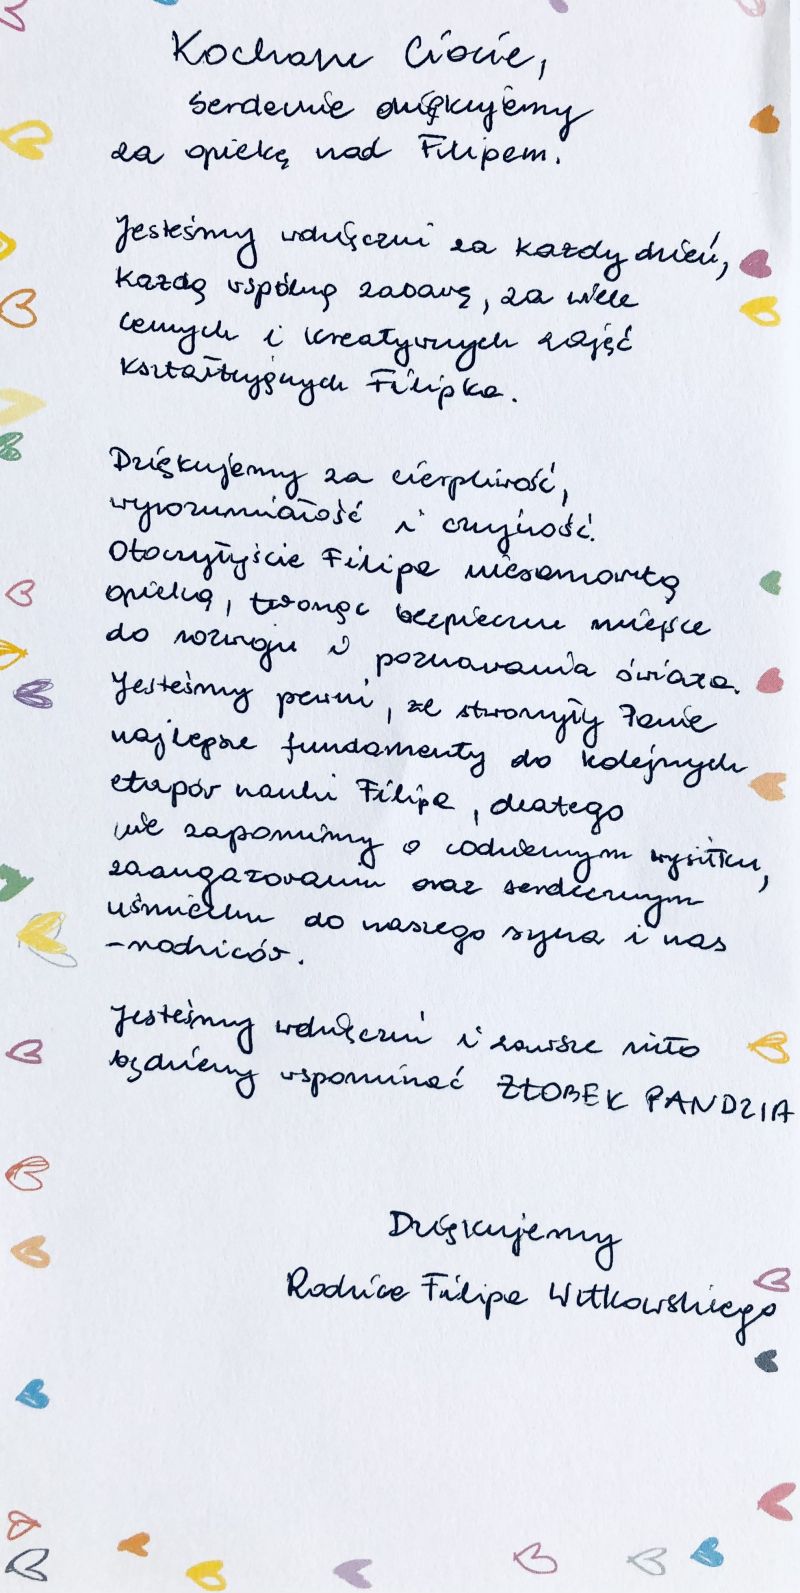 Kochane Ciocie,
serdecznie dziękujemy
za opiekę nad Filipem.
Jesteśmy wdzięczni za każdy dzień,
każdą wspólną zabawę, za wiele
cennych i kreatywnych zajęć
kształtujących Filipka.
Dziękujemy za cierpliwość,
wyrozumiałość i czujność.
Otoczyłyście Filipa niesamowitą
opieką, tworząc bezpieczne miejsce
do rozwoju i poznawania świata.
Jesteśmy pewni, że stworzyły Panie
najlepsze fundamenty do kolejnych
etapów nauki Filipa, dlatego
nie zapomnimy o codziennym wysiłku,
zaangażowaniu oraz serdecznym
uśmiechu do naszego syna i nas
-rodziców.
Jesteśmy wdzięczni i zawsze miło
będziemy wspominać ŻŁOBEK PANDZIA
Dziękujemy
Rodzice Filipa Witkowskiego